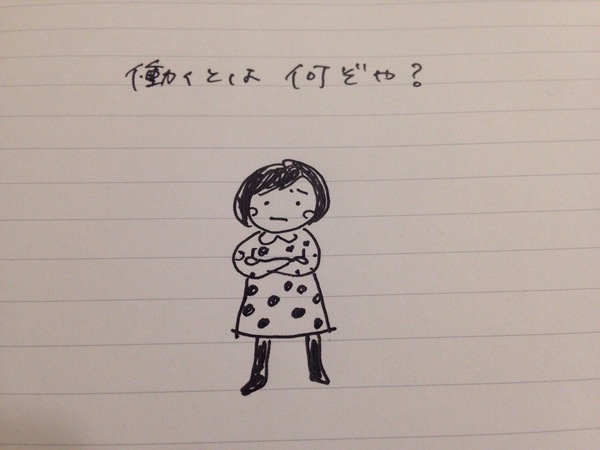 働くとは 何ぞや?